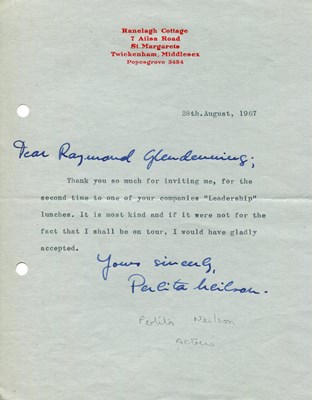 Ranelagh Cottage
7 Ailsa Road
St.Margarets
Twickenham, Middlesex
Popesgrove 3484
28th.August, 1967
Dear Raymond Glendenning;
Thank you so much for inviting me, for the
second time to one of your companies "Leadership"
lunches. It is most kind and if it were not for the
fact that I shall be on tour, I would have gladly
accepted.
Yours sincerely,
Perlita Neilson.
Perlita Neilson
Actress